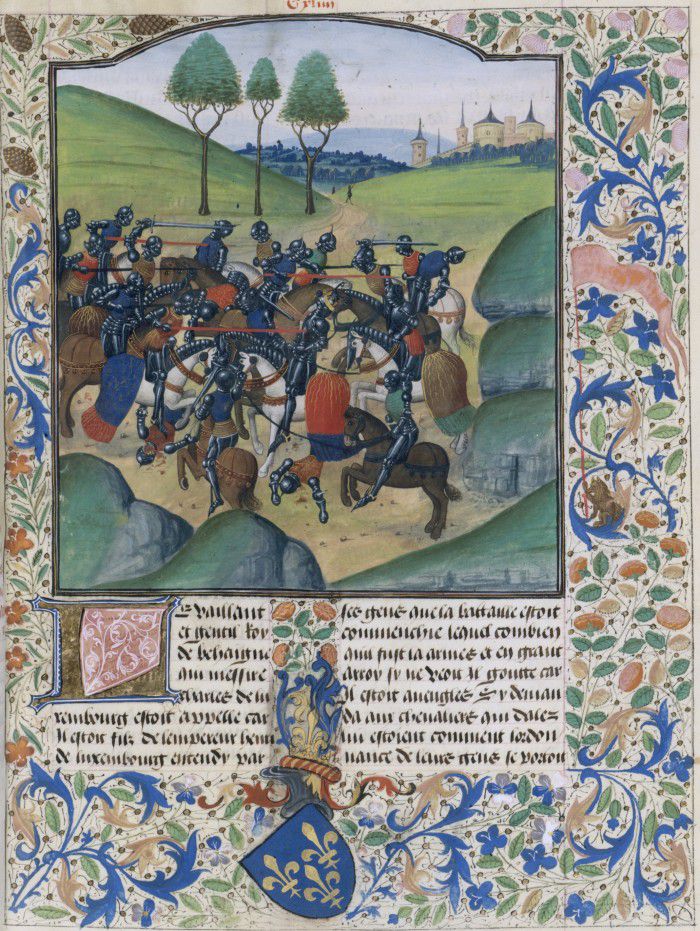 Le vaillant
et gentil Roy
de behaigne
qui messire
charles de lu
xembourg estoit appelle car
Il estoit filz de lempereur henri
de luxembourg entendy par
ses gens que la bataille estoit
commenchie lequel combien
que fust ia armes et en grant
arroy sy ne veoit Il goutte car
Il estoit aueugles Sy deman
da aux cheualiers qui dalez
lui estoient comment lordon
nance de leurs gens se portoit